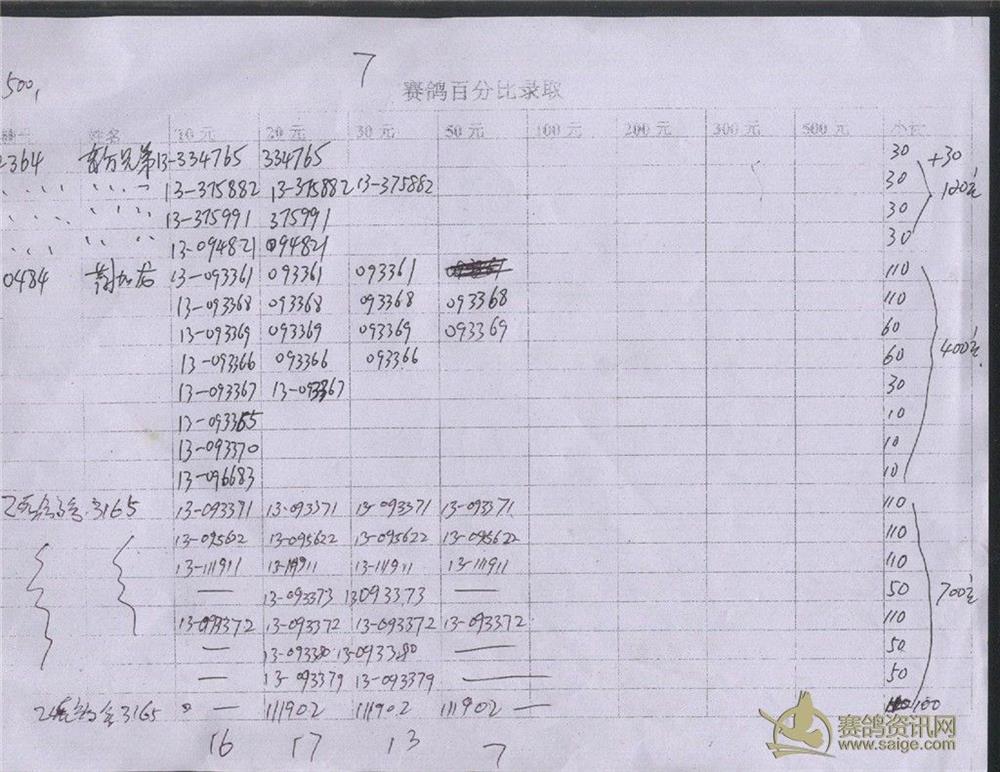 7
500,
赛鸽百分比录取
姓名 10元 20元 30元 50元 100元 200元 300元 500元 小计
2364 兄弟 13-334765 334765 30 +30
13-375882 13-375882 13-375882 30 120元
13-375991 375991 30
13-094821 094821 30
0484 13-093361 093361 093361 110
13-093368 093368 093368 093368 110
13-093369 093369 093369 093369 60
13-093366 093366 093366 60 400元
13-093367 13-093367 30
13-093365 10
13-093370 10
13-096683 10
3165 13-093371 13-093371 13-093371 13-093371 110
13-095622 13-095622 13-095622 13-095622 110
13-111911 13-111911 13-111911 13-111911 110
— 13-093373 13093373 — 50 700元
13-093372 13-093372 13-093372 13-093372 110
— 13-093380 13-093380 — 50
— 13-093379 13-093379 — 50
3165 — 111902 111902 111902 — 100
16 17 13 7
赛鸽资讯网
www.saige.com